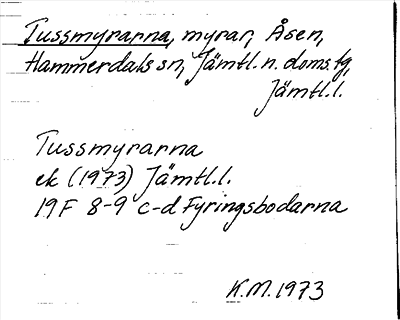 Tussmyrarna, myrar, Åsen,
Hammerdals sn, Jämtl. n. doms.tg,
Jämtl.l.
Tussmyrarna
ek (1973) Jämtl.l.
19F 8-9 c-d Fyringsbodarna
K.M. 1973